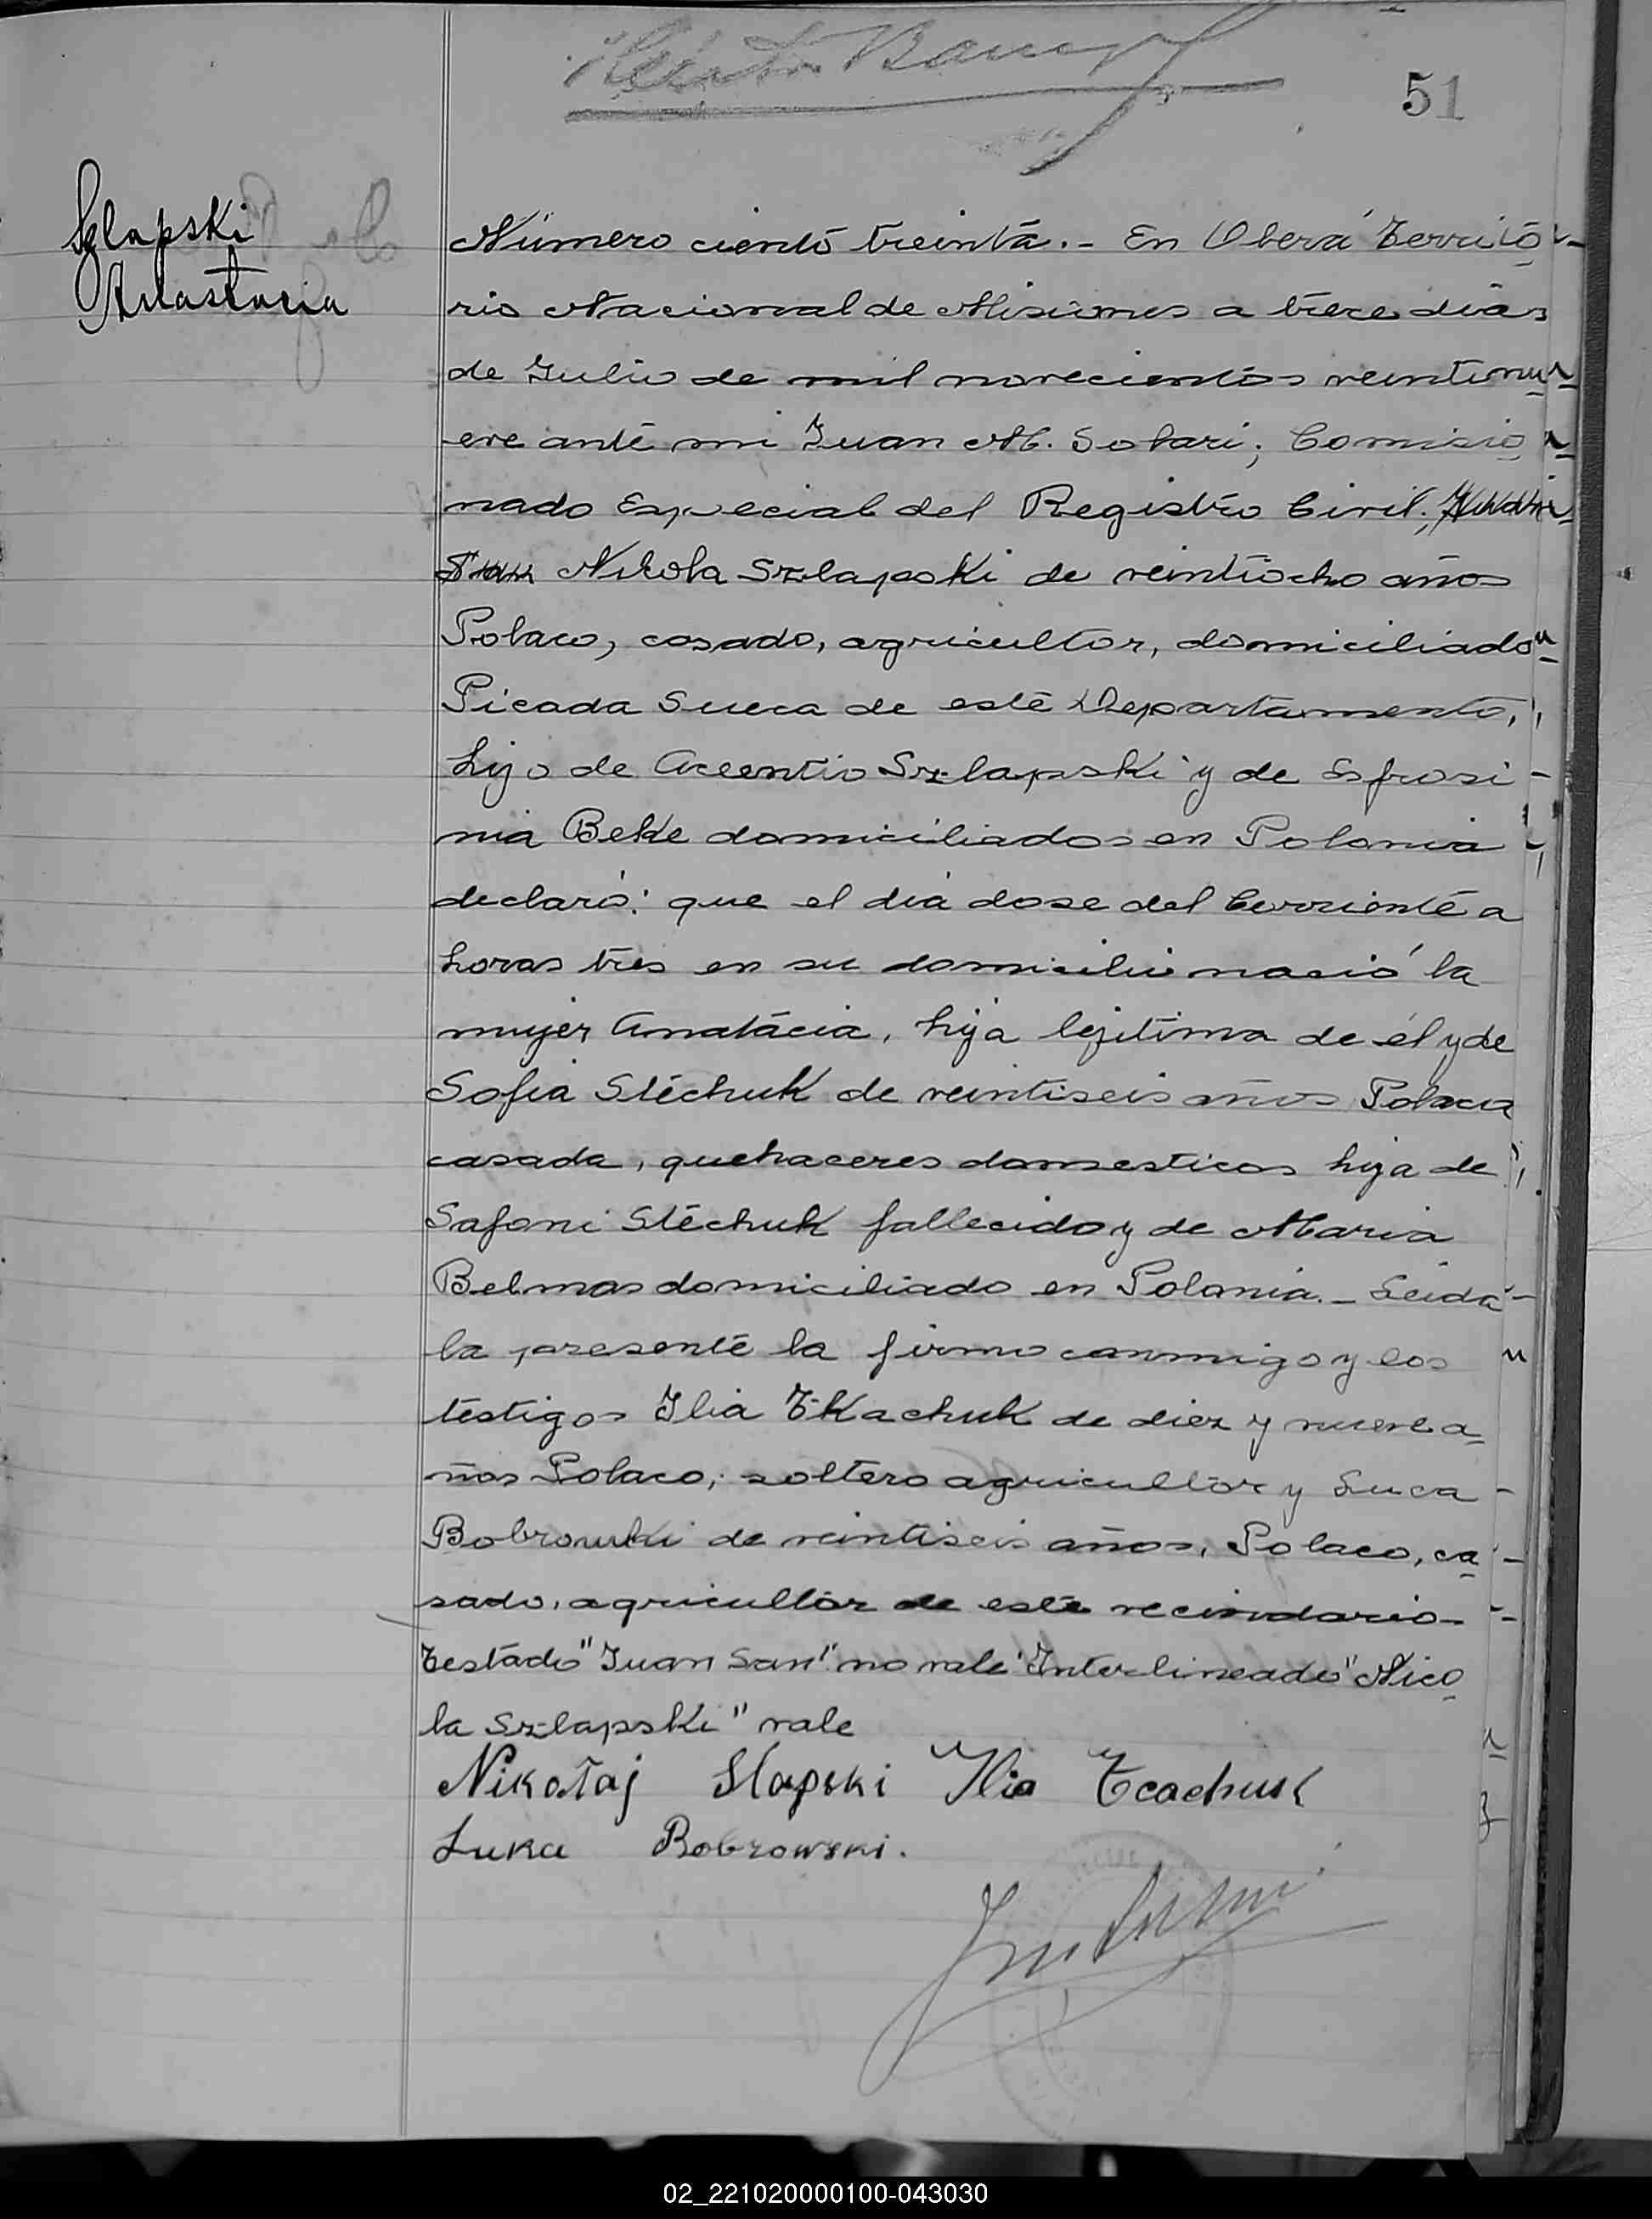 51
Szlapski
Anastacia
Número ciento treinta.- En Oberá Territo
rio Nacional de Misiones a trece dias
de Julio de mil novecientos veintinu
eve ante mi Juan M. Solari, Comisio
nado Especial del Registro Civil.
Nikola Szlapski de veintiocho años
Polaco, casado, agricultor, domiciliado
Picada Sueca de este Departamento,
hijo de Aceentio Szlapski y de Esfrosi
nia Beke domiciliados en Polonia
declaró: que el dia dose del Corriente a
horas tres en su domicilio nació la
mujer Anatácia, hija lejitima de él y de
Sofia Stéchuk de veintiseis años Polaca
casada, quehaceres domesticos hija de
Safoni Stéchuk fallecido y de Maria
Belmas domiciliado en Polonia.- Leida
la presente la firmo conmigo y los
testigos Ilia Tkachuk de diez y nueve a
ños Polaco, soltero agricultor y Luca
Bobrowski de veintiseis años, Polaco, ca
sado, agricultor de este vecindario-
Testado "Juan San" no vale Interlineado "Nico
la Szlapski" vale
Nikołaj Slapski Ilia Tcachuk
Luka Bobrowski.
02_221020000100-043030